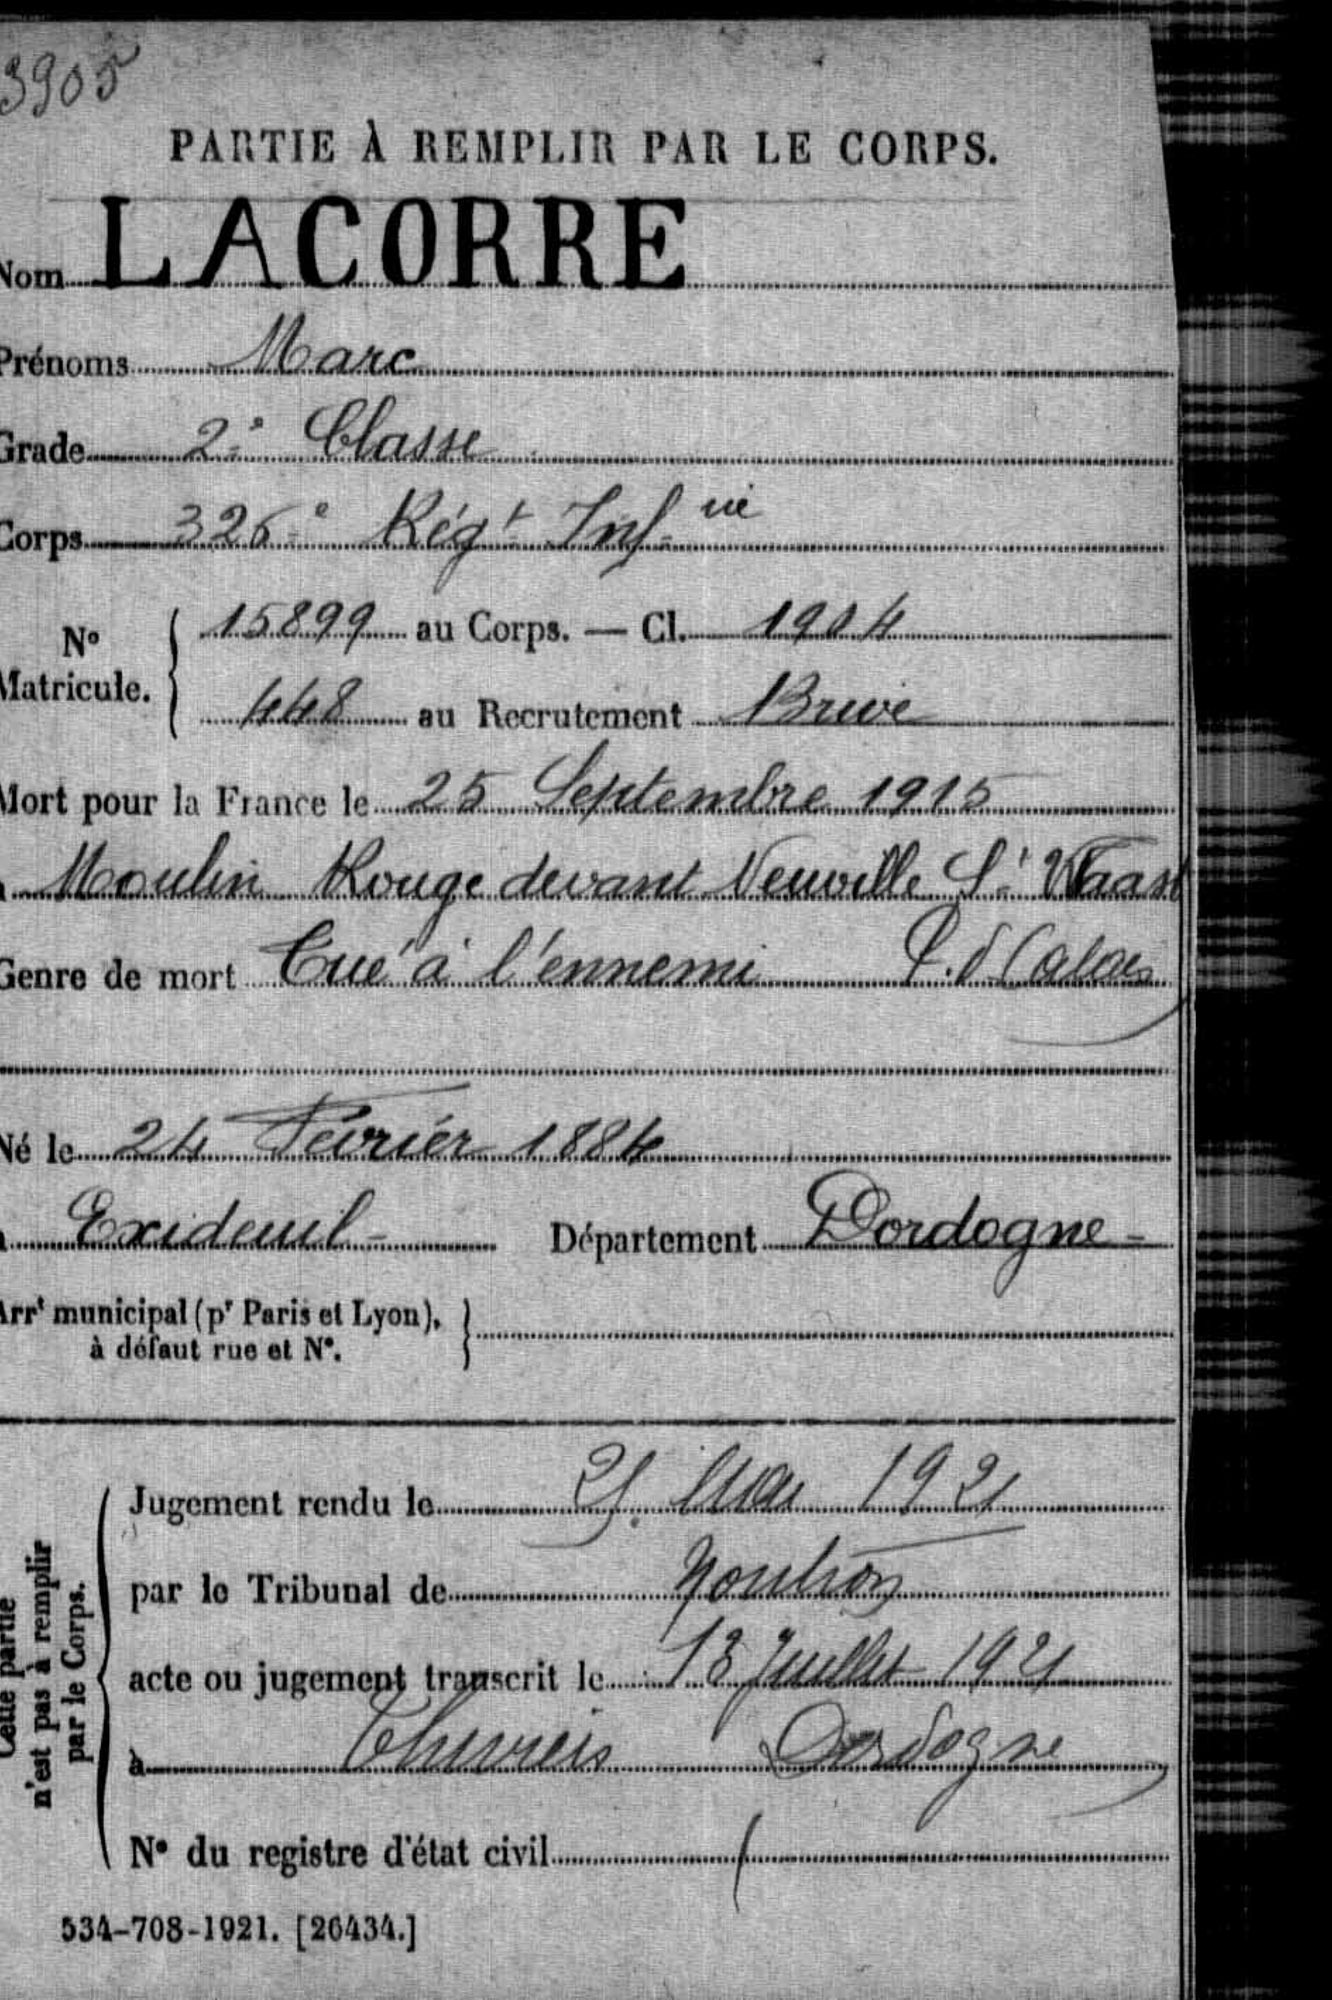 3905
PARTIE À REMPLIR PAR LE CORPS.
Nom LACORRE
Prénoms Marc
Grade 2e Classe
Corps 326e Régt Infie
N° Matricule. { 15899 au Corps. — Cl. 1904
448 au Recrutement Brive
Mort pour la France le 25 Septembre 1915
à Moulin Rouge devant Neuville St Waast
Genre de mort Tué à l'ennemi P. d Calais
Né le 24 Février 1884
à Exideuil - Département Dordogne -
Arrt municipal (pr Paris et Lyon), }
à défaut rue et N°.
Cette partie
n'est pas à remplir
par le Corps.
Jugement rendu le 21 Mai 1921
par le Tribunal de Nontron
acte ou jugement transcrit le 13 Juillet 1921
à Thiviers Dordogne
N° du registre d'état civil
534-708-1921. [26434.]